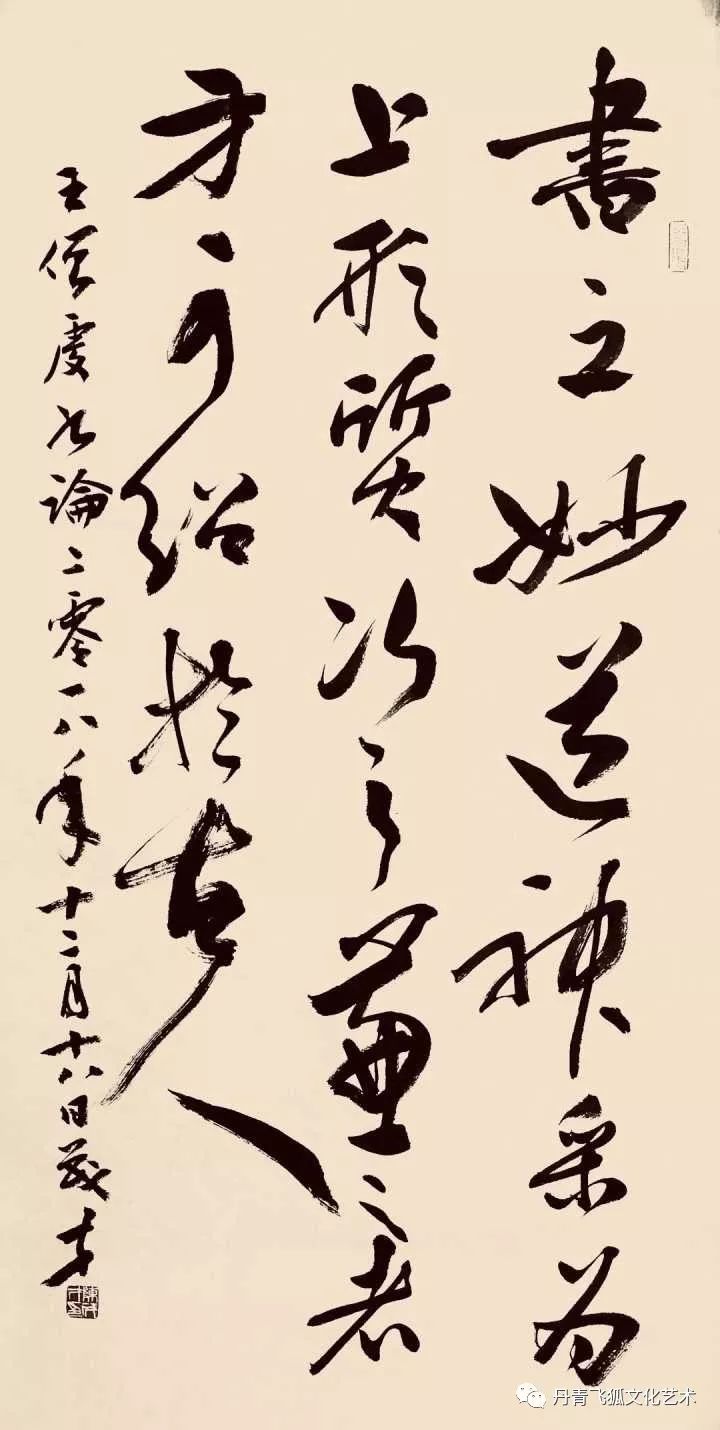 書之妙道神采为
上形質次之兼之者
方可紹於古人
王僧虔书論二零一八年十二月十八日茂才
丹青飞狐文化艺术